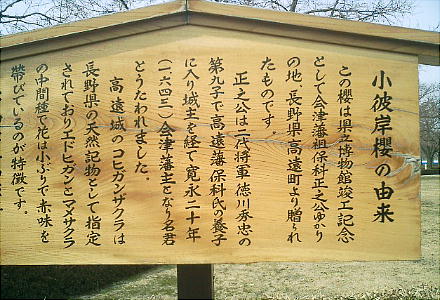 小彼岸櫻の由来
この櫻は県立博物館竣工記念
として会津藩祖保科正之公ゆかり
の地、長野県高遠町より贈られ
たものです。
正之公は二代将軍徳川秀忠の
第九子で高遠藩保科氏の養子
に入り城主を経て寛永二十年
(一六四三)会津藩主となり名君
とうたわれました。
高遠城のコヒガンザクラは
長野県の天然記物として指定
されておりエドヒガンとマメザクラ
の中間種で花は小ぶりで赤味を
帯びているのが特徴です。